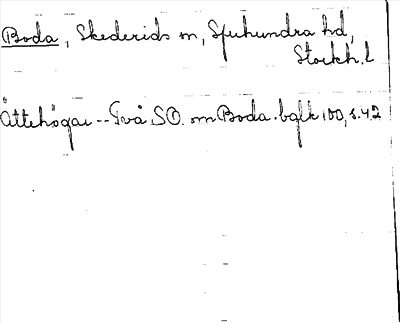 Boda, Skederids sn, Sjuhundra hd,
Stockh. l
Ättehögar -- Två SO. om Boda. bglk 100, s. 42